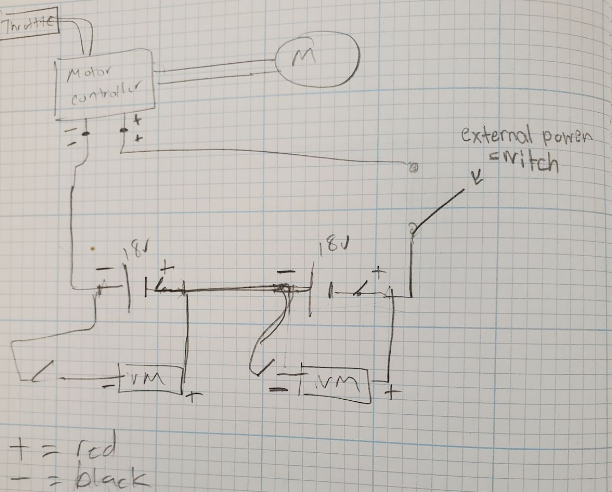 Throttle
M
Motor
controller
+
+
-
-
external power
switch
18V
18V
-
+
-
+
VM
-
+
VM
-
+
+ = red
- = black